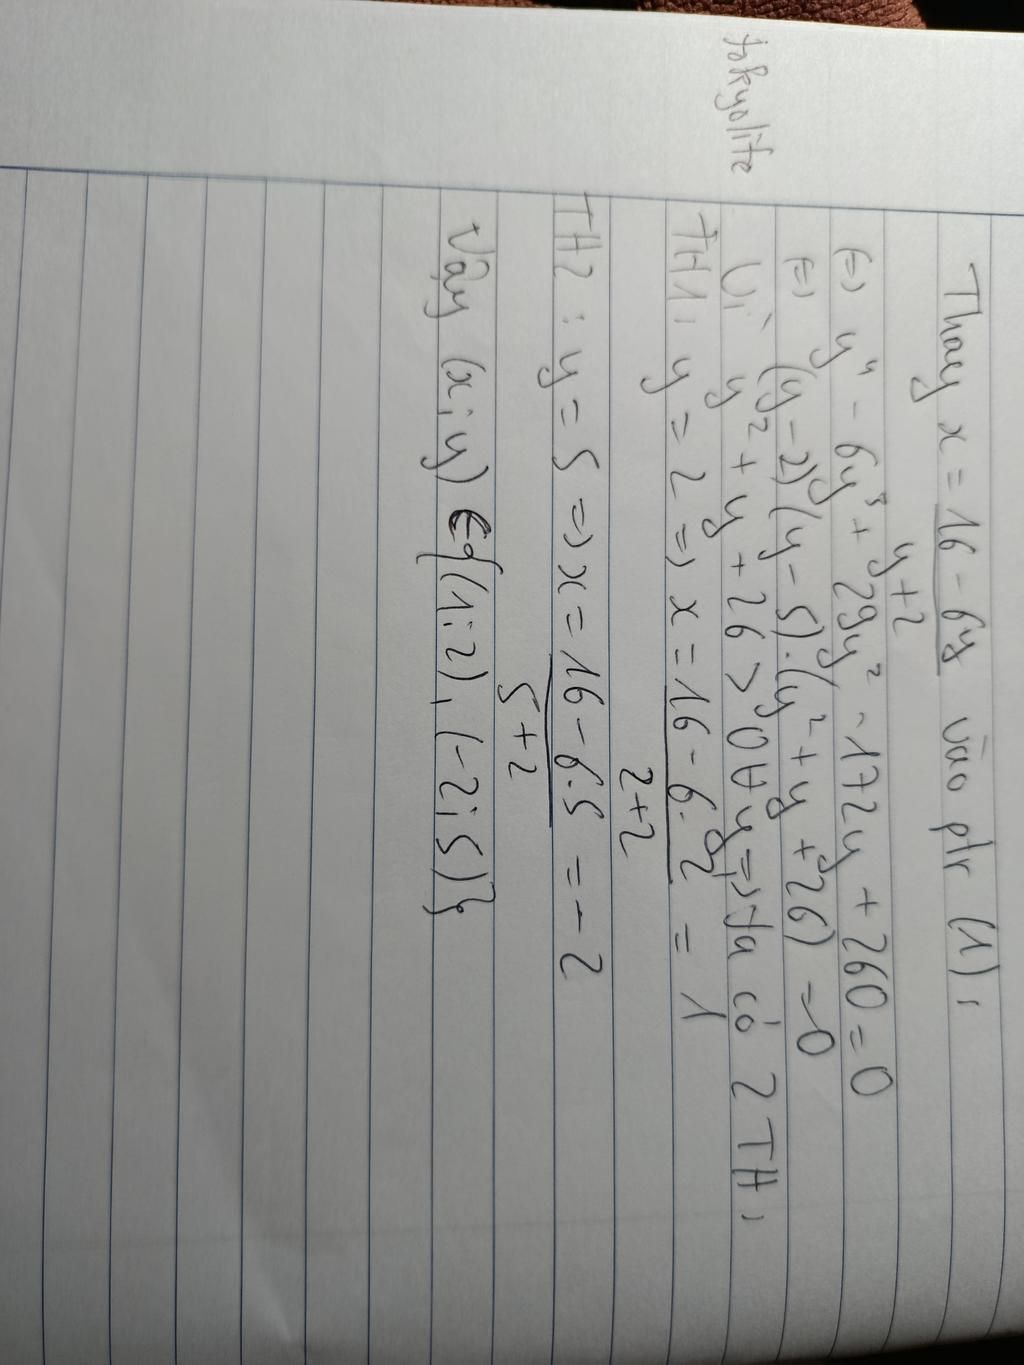 tokyolife
Thay x = 16 - 6y / y+2 vào ptr (1):
(=) y⁴ - 6y³ + 29y² - 172y + 260 = 0
(=) (y-2)(y-5).(y² + y + 26) = 0
Vì y² + y + 26 > 0 ∀ y => Ta có 2 TH:
TH1: y = 2 => x = 16 - 6.2 / 2+2 = 1
TH2: y = 5 => x = 16 - 6.5 / 5+2 = -2
Vậy (x;y) ∈ {(1;2), (-2;5)}